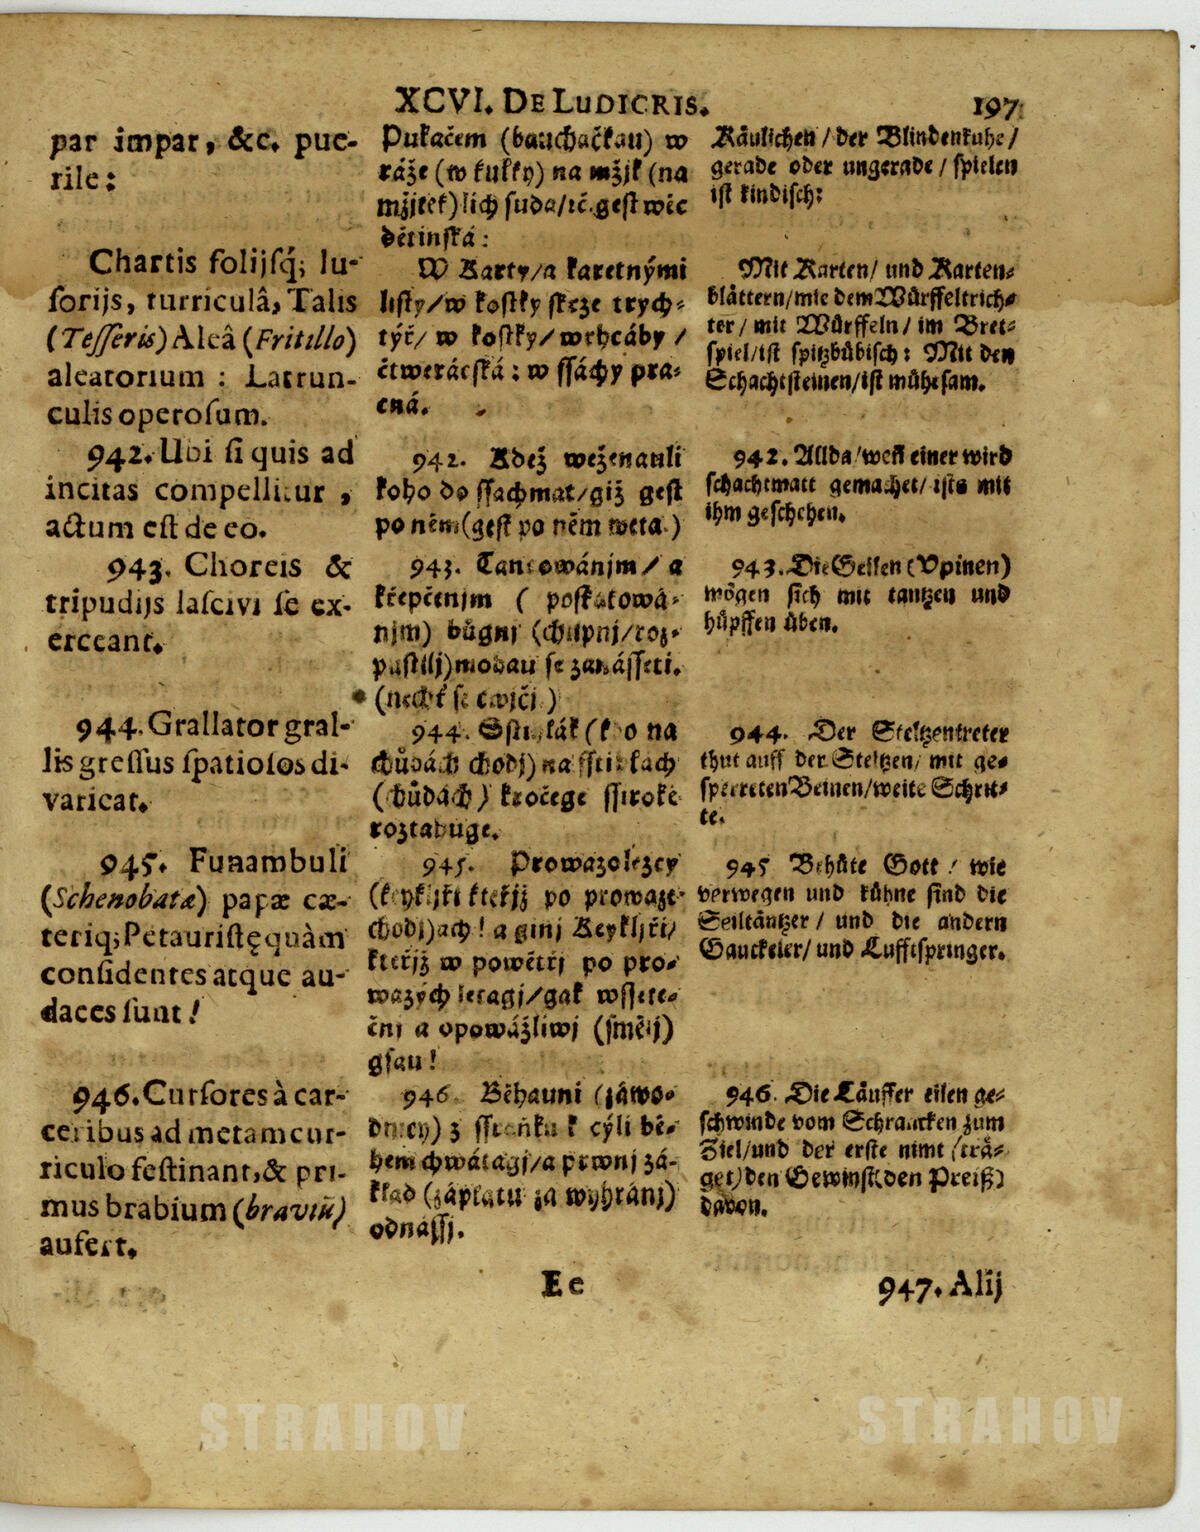 XCVI. DE LUDICRIS. 197
par impar, &c. pue-
rile:
Chartis folijſq́; lu-
ſorijs, turriculâ, Talis
(Teſſeris) Aleâ (Fritillo)
aleatorium : Latrun-
culis operoſum.
942. Ubi ſi quis ad
incitas compellitur,
actum eſt de eo.
943. Choreis &
tripudijs laſcivi ſe ex-
erceant.
944. Grallator gral-
lis greſſus ſpatioſos di-
varicat.
945. Funambuli
(Schenobatæ) papæ cæ-
teriq; Petauriſtę quàm
confidentes atque au-
daces ſunt!
946. Curſores à car-
ceribus ad metam cur-
riculo feſtinant, & pri-
mus brabium (braviũ)
aufert.
Pukačem (bauchačkau) w
ráže (w kulky) na mžjk (na
mžjtek) lich ſuda/ ꝛč. geſt wěc
dětinſká:
W Karty/ a karetnými
liſty/ w koſtky ſkrze trych-
týř/ w koſtky/ wrhcáby /
čtwerácſká: w ſſáchy pra-
cná.
942. Kdež weženauli
koho do ſſachmat/ giž geſt
po něm (geſt po něm weta.)
943. Tancowánjm / a
křepčenjm ( poſkakowá-
njm) bůgnj (chlipnj/ roz-
puſtilj) mohau ſe zanáſſeti.
(nechť ſe cwičj )
944. (kdo na
chůdách chodj) na ſſtihlach
(chůdách) kročege ſſiroké
roztahuge.
945. Prowazolezcy
(keyklijři kteřijž po prowaze
chodj) ach! a ginj Keykljři/
kteřjž w powětřj po pro-
wazých letagj/ gak wſſete-
čnj a opowážliwj (ſmělj)
gſau!
946. Běhauni (záwo-
dnicy) z ſſraňku k cýli bě-
hem chwátagj/ a prwnj zá-
klad (záplatu za wyhránj)
odnáſſj.
Käulichen / der Blindenkuhe/
gerade oder ungerade / ſpielen
iſt kindiſch:
Mit Karten/ und Karten-
blättern/ mit dem Würffeltrich-
ter / mit Würffeln/ im Bret-
ſpiel/ iſt ſpitzbübiſch: Mit den
Schachtſteinen/ iſt müheſam.
942. Allda/ weñ einer wird
ſchachtmatt gemachet/ iſts mit
ihm geſchehen.
943. Die Geilen (Üpinen)
mögen ſich mit tantzen und
hüpffen üben.
944. Der Steltzentreter
thut auff der Steltzen/ mit ge-
ſperreten Beinen/ weite Schrit-
te.
945 Behüte Gott! wie
verwegen und kühne ſind die
Seiltäntzer / und die andern
Gauckeler/ und Lufftſpringer.
946. Die Läuffer eilen ge-
ſchwinde vom Schrancken zum
Ziel/ und der erſte nimt (trä-
get) den Gewinſt (den Preiß)
davon.
Ee 947. Alij
STRAHOV STRAHOV